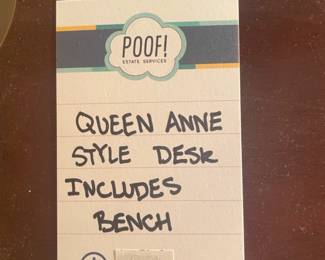 POOF!
ESTATE SERVICES
QUEEN ANNE
STYLE DESK
INCLUDES
BENCH